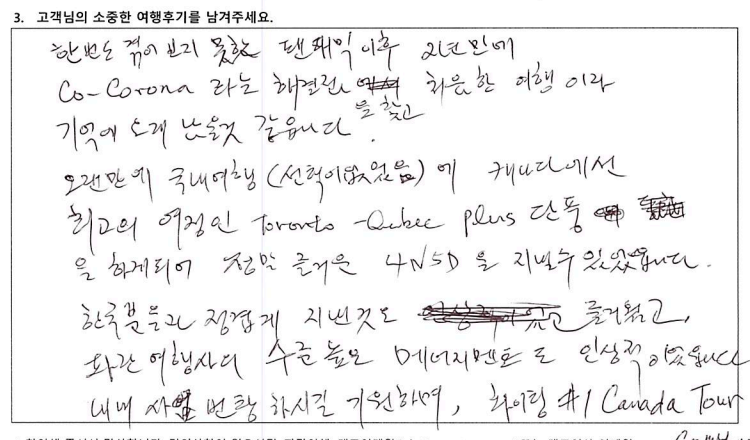 3. 고객님의 소중한 여행후기를 남겨주세요.
한번도 겪어 보지 못한 팬데믹 이후 2년만에
Co-Corona 라는 해결전 을 찾고 처음한 여행 이라
기억에 오래 남을것 같읍니다.
오랜만에 국내여행 (선택이없었음) 에 캐나다에선
최고의 여정인 Toronto - Qubec plus 단풍
을 하게되어 정말 즐거운 4N5D 을 지낼수 있었읍니다.
한국분들과 정겹게 지낸것도 즐거웠고,
화관 여행사의 수준 높은 메너지멘트도 인상적이었읍니다
내내 사업 번창 하시길 기원하며, 화이팅 #1 Canada Tour